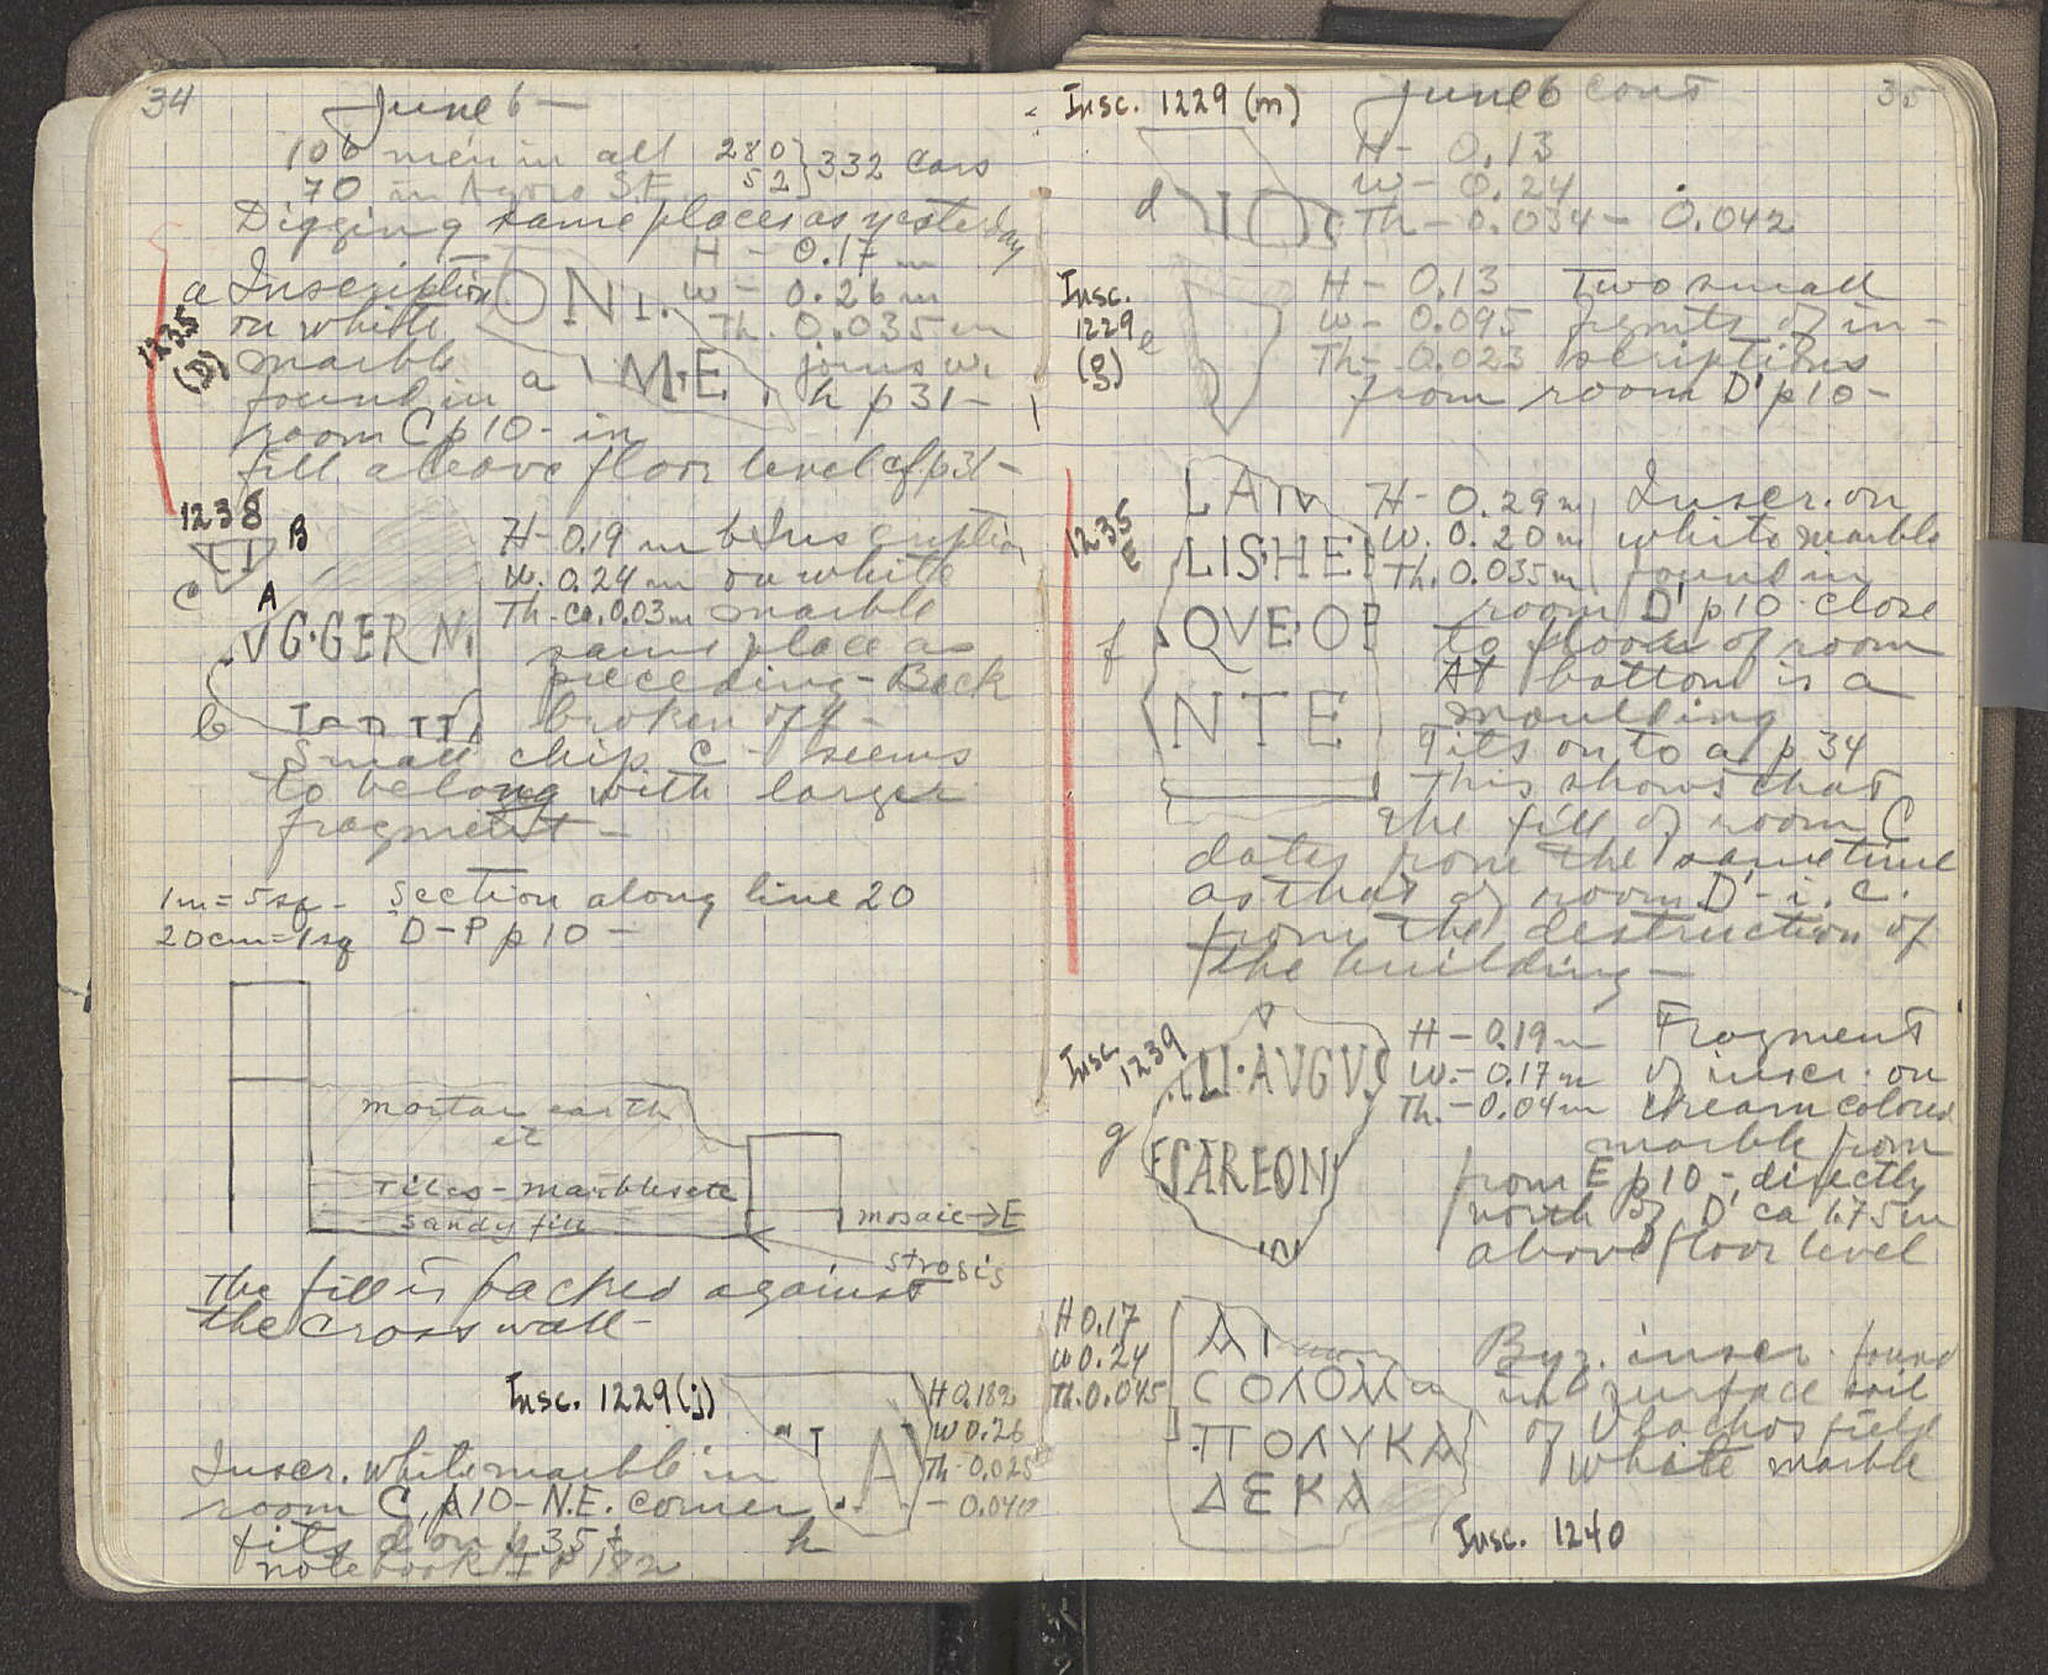 34
June 6 —
106 men in all 280 } 332 cars
70 in Agora S.E. 52
Digging same places as yesterday
a Inscription
on white
marble
found in
room C p 10 - in
fill above floor level cf. p 31 -
1235
(D)
ONI.
M·E
a
H - 0.17 m
W - 0.26 m
Th. 0.035 m
joins w.
h p 31 -
1238
B
C
A
VG·GER N
b
H - 0.19 m b Inscription
W. 0.24 m on white
Th - ca. 0.03 m marble
same place as
preceding - Back
broken off -
Small chip C seems
to belong with larger
fragment -
1m = 5 sq - Section along line 20
20cm = 1 sq D - P p 10 -
mortar earth
et
Tiles - marbles etc
Sandy fill
mosaic → E
strosis
The fill is packed against
the cross wall -
Insc. 1229 (j)
T A
H 0.182
W 0.26
Th - 0.025
- 0.040
Inscr. white marble in
room C, p 10 - N.E. corner
fits d on p 35 +
notebook II p 182
h
35
June 6 cont
Insc. 1229 (m)
d
H - 0.13
W - 0.24
Th - 0.034 - 0.042
Insc.
1229
(g)
e
H - 0.13 Two small
W - 0.095 frgmts of in-
Th - 0.023 scriptions
from room D' p 10 -
1235
E
LAN
LIS·HE
QVE·OP
NTE
f
H - 0.29 m Inscr. on
W. 0.20 m white marble
Th. 0.035 m found in
room D' p 10 - close
to floor of room
At bottom is a
moulding
Fits on to a p 34
This shows that
the fill of room C
dates from the same time
as that of room D' - i.e.
from the destruction of
the building -
Insc. 1239
LI·AVGVS
ESAREON
g
H - 0.19 m Fragment
W. - 0.17 m of inscr. on
Th. - 0.04 m cream colored
marble from
from E p 10 -, directly
north of D' ca 1.75 m
above floor level
H 0.17
W 0.24
Th. 0.045
ΑΓ
CΟΛΟΜ
ΠΟΛΥΚΑ
ΔΕΚΑ
Byz. inscr. found
in surface soil
of Vlachos field
white marble
Insc. 1240